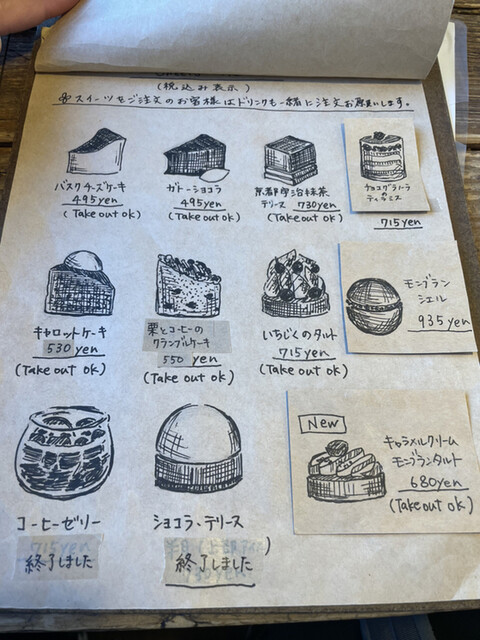 (税込み表示)
スイーツをご注文のお客様はドリンクも一緒に注文お願いします。
バスクチーズケーキ
495yen
(Take out ok)
ガトーショコラ
495yen
(Take out ok)
京都宇治抹茶
テリーヌ 730yen
(Take out ok)
チョコグラノーラ
の
ティラミス
715yen
キャロットケーキ
530 yen
(Take out ok)
栗とコーヒーの
クランブルケーキ
550 yen
(Take out ok)
いちじくのタルト
715yen
(Take out ok)
モンブラン
シェル
935yen
コーヒーゼリー
終了しました
ショコラ、テリース
終了しました
New
キャラメルクリーム
モンブランタルト
680yen
(Take out ok)